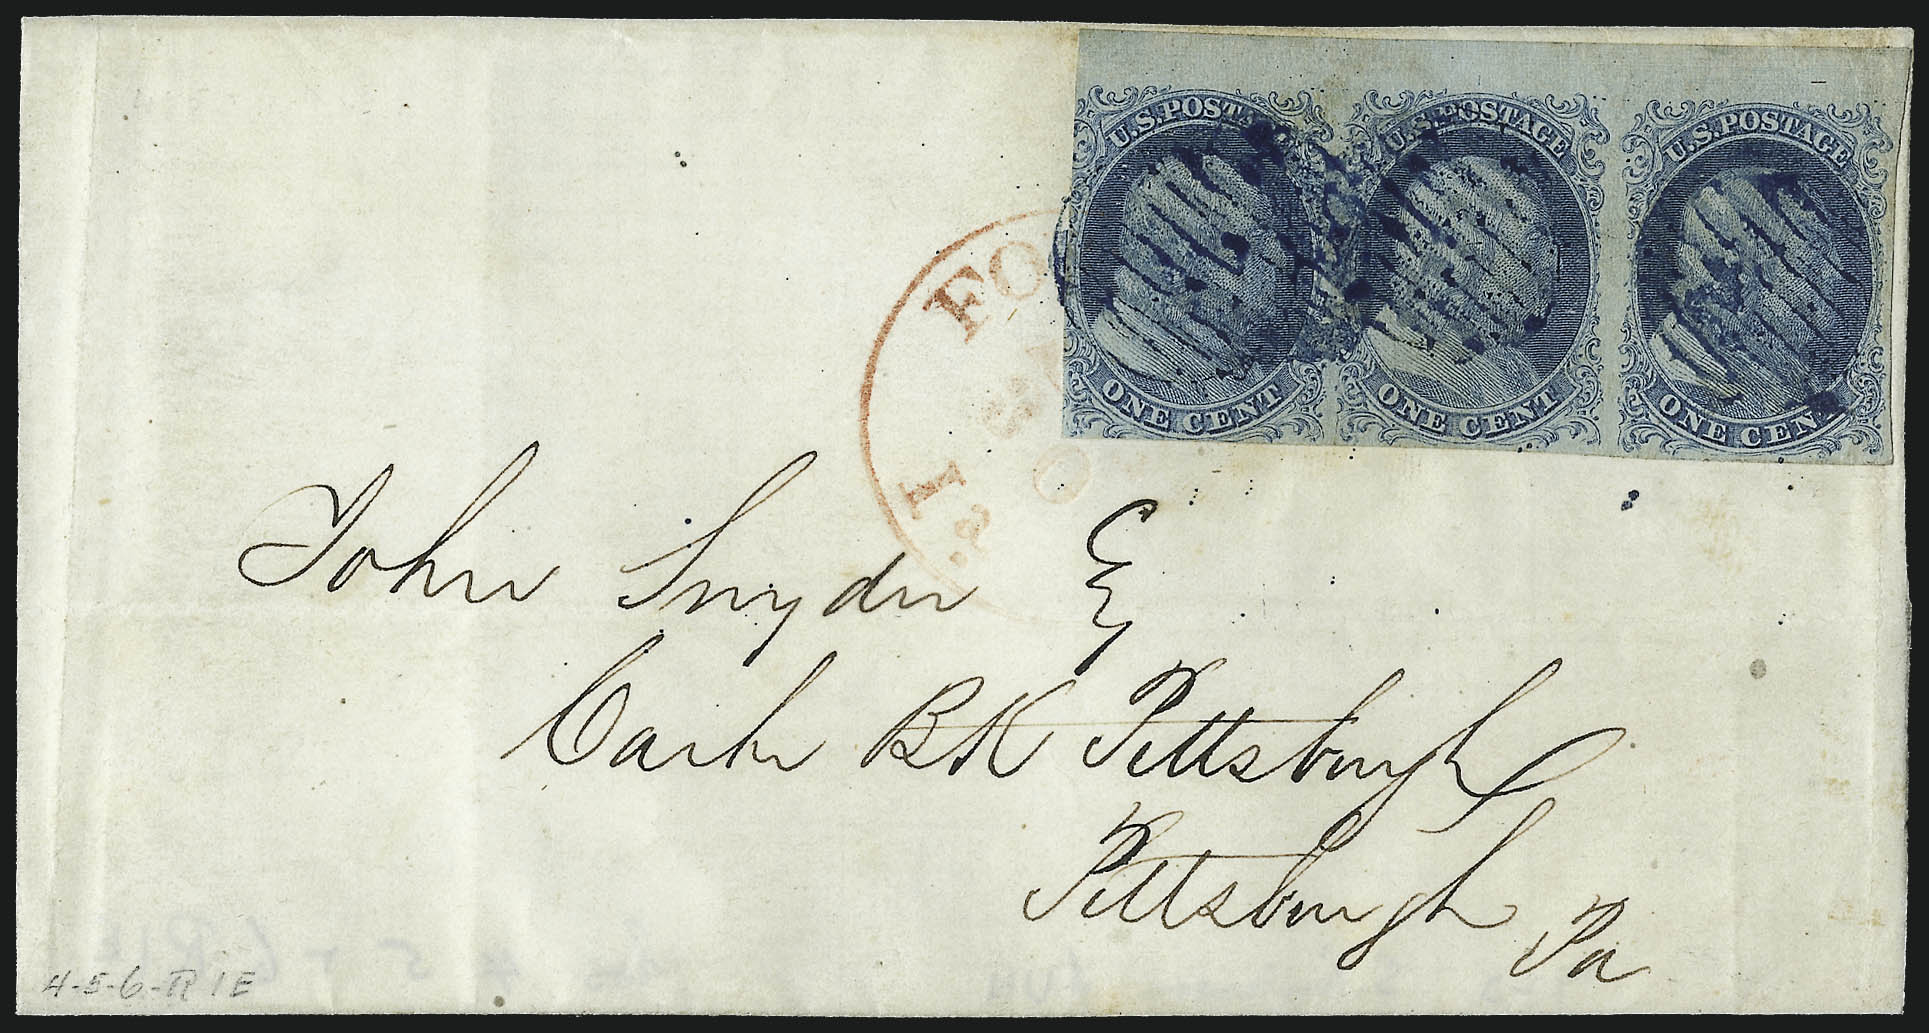 U.S. POSTAGE U.S. POSTAGE U.S. POSTAGE
ONE CENT ONE CENT ONE CENT
FO
I
John Snyder Esq
Cash BK Pittsburgh
Pittsburgh Pa
4-5-6-R1E